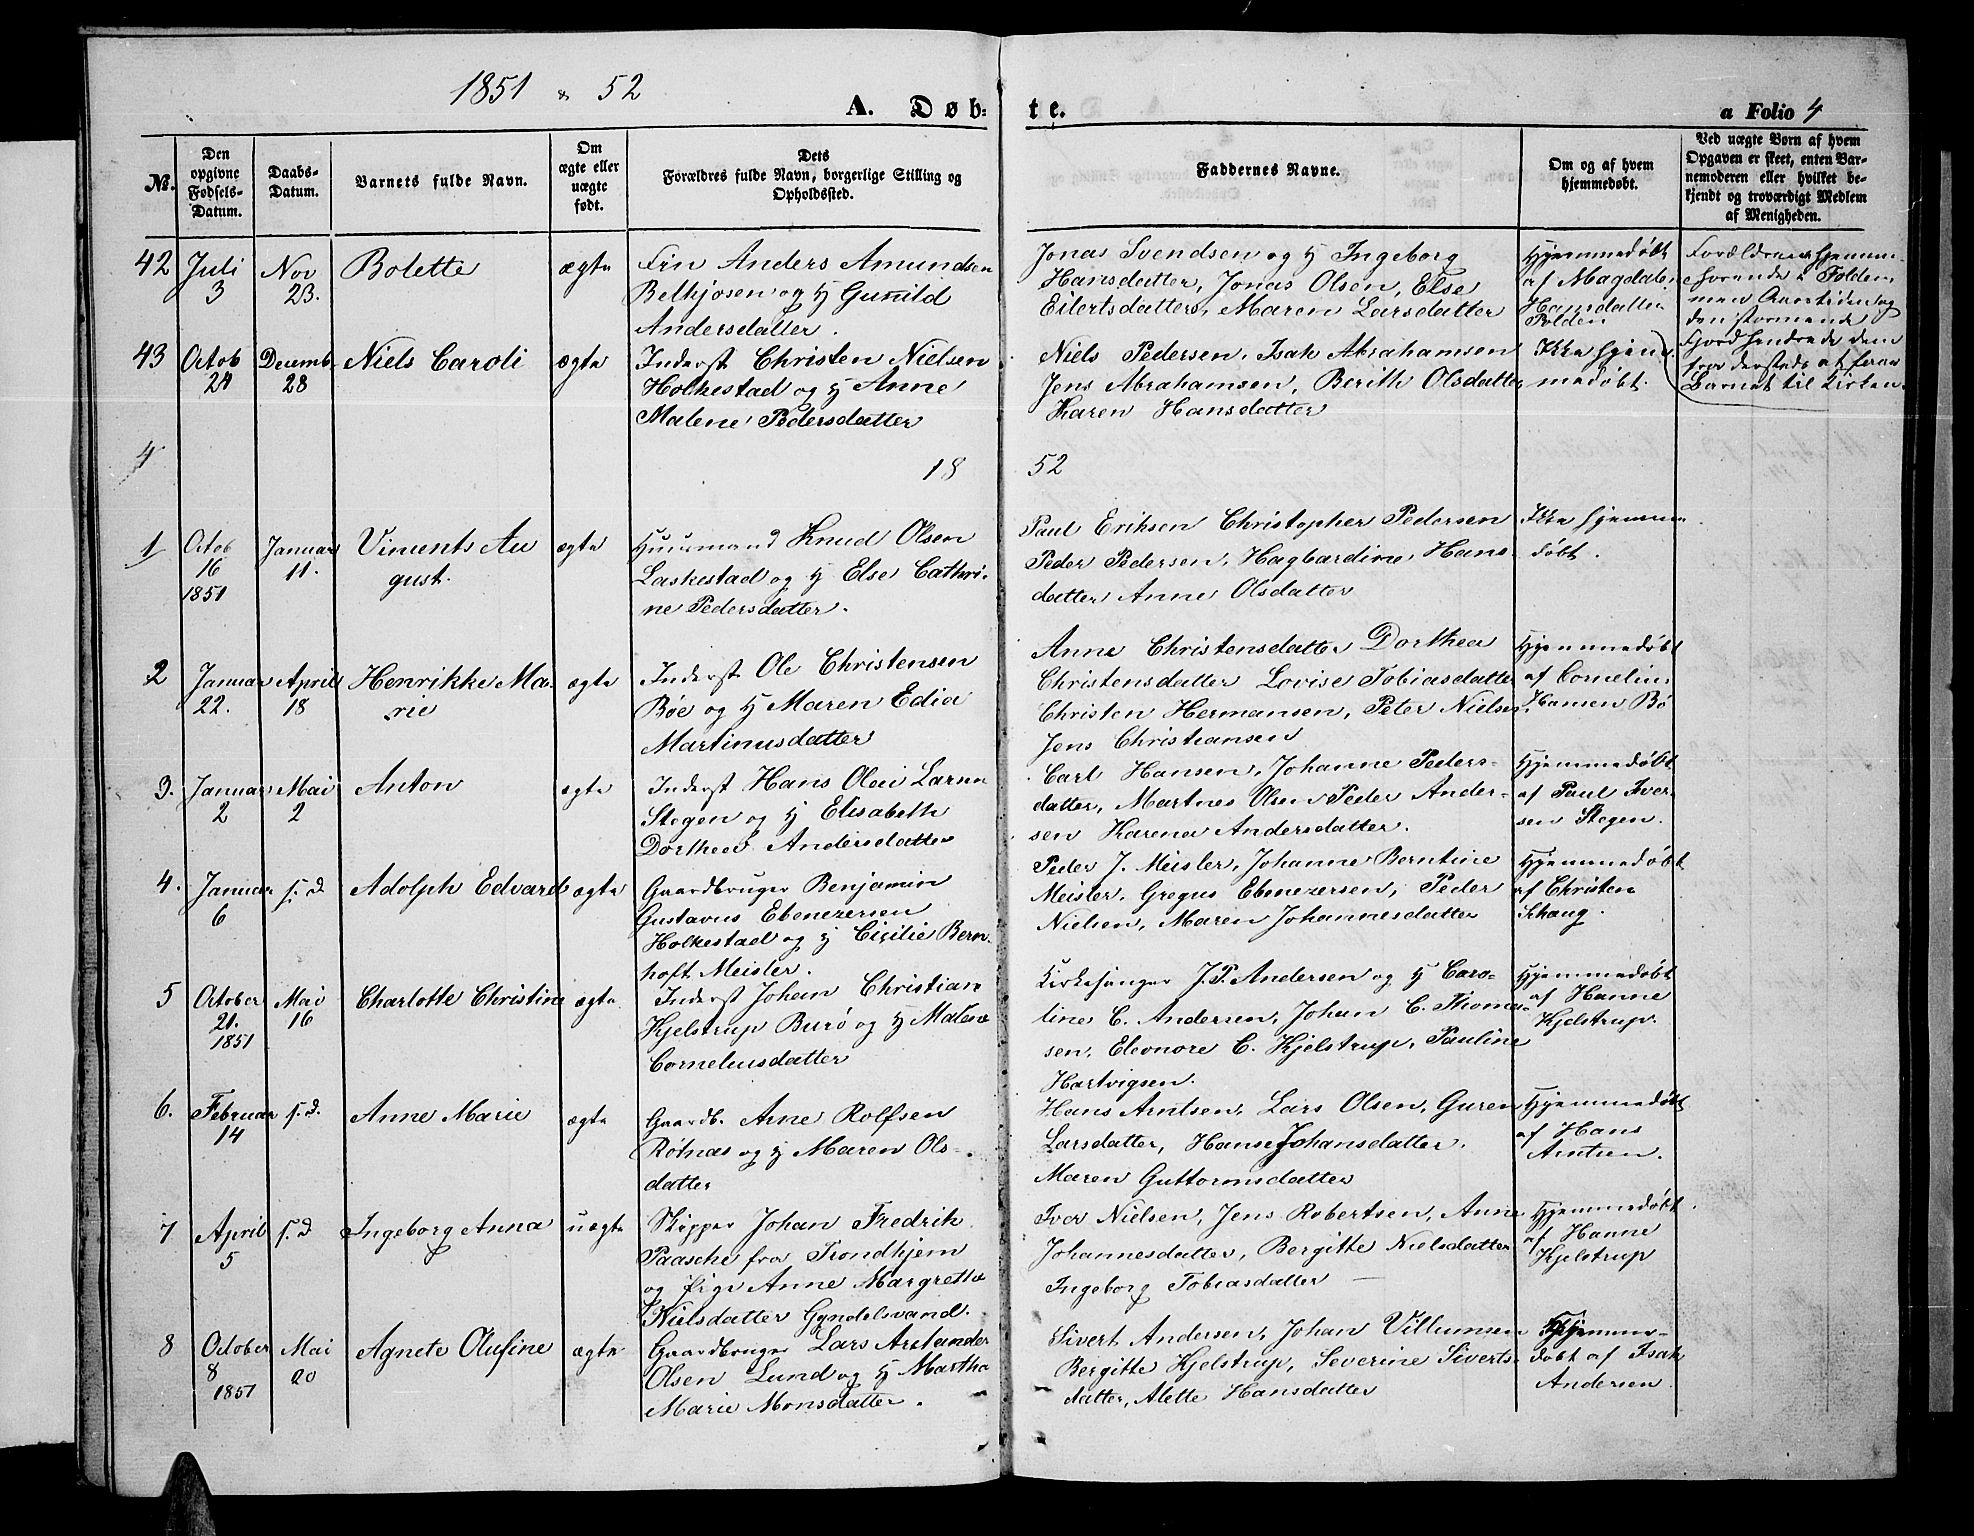 1851 & 52
A. Døb-
te.
a Folio 4
No.
Den
opgivne
Fødsels-
Datum.
Daabs-
Datum.
Barnets fulde Navn.
Om
ægte eller
uægte
født.
Dets
Forældres fulde Navn, borgerlige Stilling og
Opholdssted.
Faddernes Navne.
Om og af hvem
hjemmedøbt.
Ved uægte Børn af hvem
Opgaven er skeet, enten Bar-
nemoderen eller hvilket be-
kjendt og troværdigt Medlem
af Menigheden.
42
Juli
3
Nov
23.
Bolette
ægte
Fin Anders Amundsen
og hj Gunild
Andersdatter.
Jonas Svendsen og hj Ingeborg
Hansdatter, Jonas Olsen, Else
Eilertsdatter, Maren Larsdatter
Hjemmedøbt
af Magdalen
Hansdatter
Folden
Forældrene hjemme-
hørende i Folden,
men Aarstiden og
den stormende
Fjord hindrede dem
fra dersteds at føre
Barnet til Kirken.
43
Octob
24
Decemb
28
Niels Caroli
ægte
Inderst Christen Nielsen
Holkestad og hj Anne
Malene Pedersdatter
Niels Pedersen, Isak Abrahamsen
Jens Abrahamsen, Berith Olsdatter
Karen Hansdatter
Ikke hjem-
medøbt.
4
18
52
1
Octob
16
1851
Januar
11.
Vincents Au
gust.
ægte
Huusmand Knud Olsen
Laskestad og hj Else Cathri-
ne Pedersdatter.
Paul Eriksen Christopher Pedersen
Peder Pedersen, Hagbardine Hans-
datter Anne Olsdatter
Ikke hjemme
døbt.
2
Januar
22.
April
18
Henrikke Ma-
rie
ægte
Inderst Ole Christensen
Bøe og hj Maren Edia
Martinusdatter
Anne Christensdatter Dorthea
Christensdatter Lovise Tobiasdatter
Christen Hermansen, Peter Nielsen
Jens Christiansen
Hjemmedøbt
af Cornelius
Hansen Bø
3.
Januar
2
Mai
2
Anton
ægte
Inderst Hans Olai Larsen
Stegen og hj Elisabeth
Dorthea Andersdatter
Carl Hansen, Johanne Peders-
datter, Martnes Olsen Peder Ander-
sen Karena Andersdatter.
Hjemmedøbt
af Paul Iver-
sen Stegen.
4.
Januar
6
s. d
Adolph Edvard
ægte
Gaardbruger Benjamin
Gustavus Ebenezersen
Holkestad og hj Cicilie Bern-
hoft Meisler.
Peder J. Meisler, Johanne Berntine
Meisler, Gregus Ebenezersen, Peder
Nielsen, Maren Johannesdatter
Hjemmedøbt
af Christen
Schaug.
5
October
21.
1851
Mai
16
Charlotte Christine
ægte
Inderst Johan Christian
Kjelstrup Burø og hj Malene
Corneliusdatter
Kirkesanger J. P. Andersen og hj Caro-
line C. Andersen, Johan C. Thom-
sen, Eleonore C. Kjelstrup, Pauline
Hartvigsen.
Hjemmedøbt
af Hanne
Kjelstrup.
6.
Februar
14
s. d.
Anne Marie
ægte
Gaardb. Arne Rolfsen
Røtnas og hj Maren Ols-
datter
Hans Arntsen, Lars Olsen, Guren
Larsdatter, Hanse Johansdatter.
Maren Guttormsdatter
Hjemmedøbt
af Hans
Arntsen.
7
April
5
s. d
Ingeborg Anna
uægte
Skipper Johan Fredrik
Paasche fra Trondhjem
og Pige Anne Margrethe
Nielsdatter Gyndelsvand.
Iver Nielsen, Jens Robertsen, Anne
Johannesdatter, Bergitte Nielsdatter
Ingeborg Tobiasdatter
Hjemmedøbt
af Hanne
Kjelstrup
8
October
8
1851
Mai
20
Agnete Olufine
ægte
Gaardbruger Lars
Olsen Lund og hj Martha
Marie Monsdatter.
Sivert Andersen, Johan Villumsen
Bergitte Kjelstrup, Severine Siverts-
datter, Alette Hansdatter
Hjemme-
døbt af Isak
Andersen